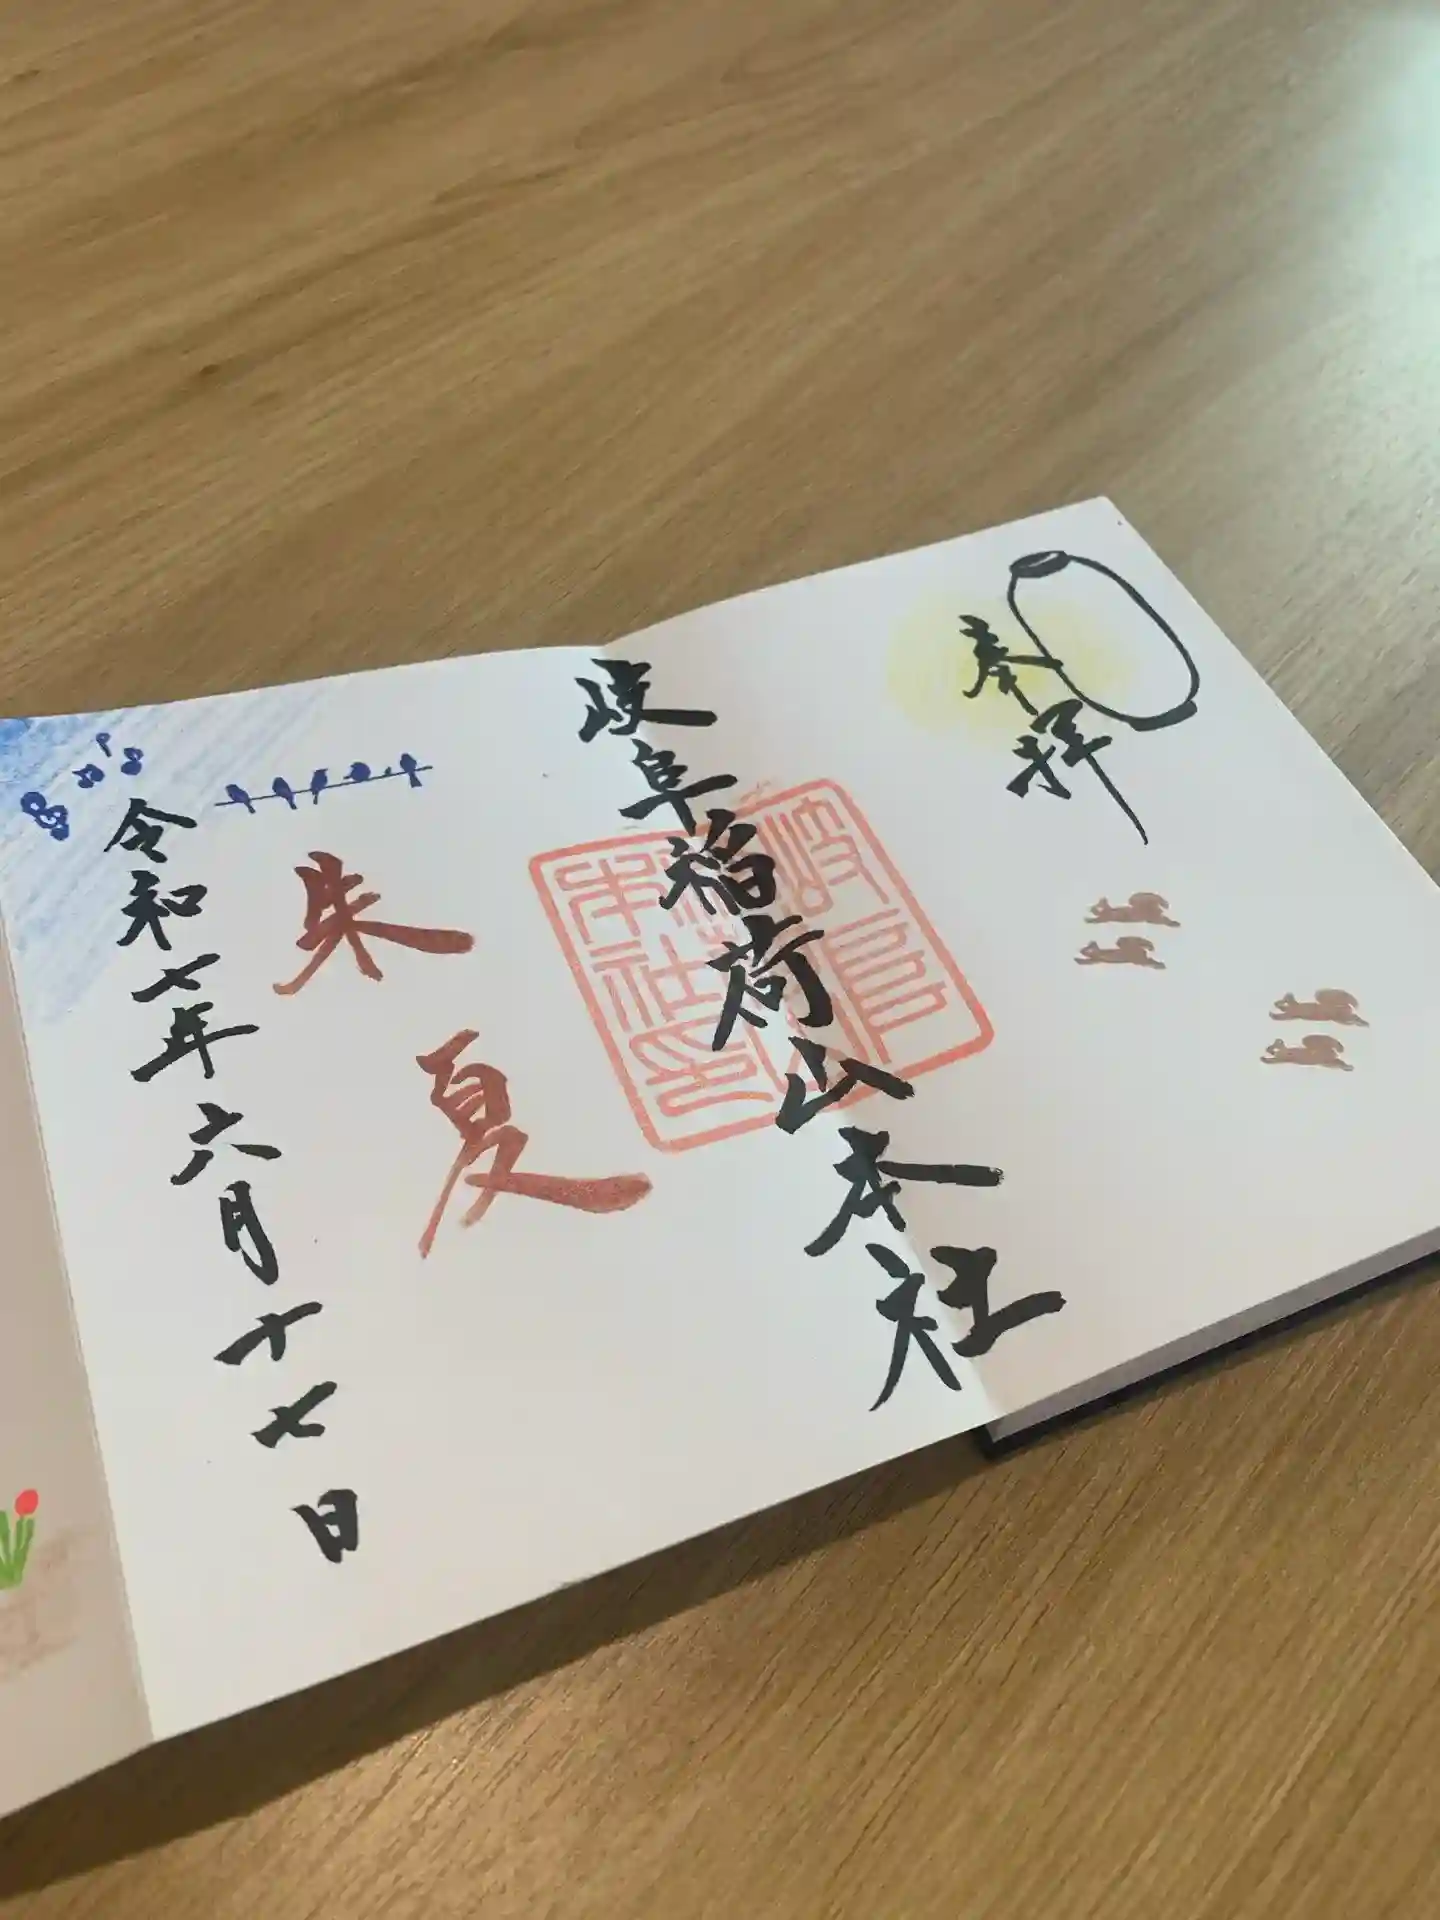 奉拝
岐阜稲荷山本社
岐阜
本社印
朱夏
令和七年六月十七日